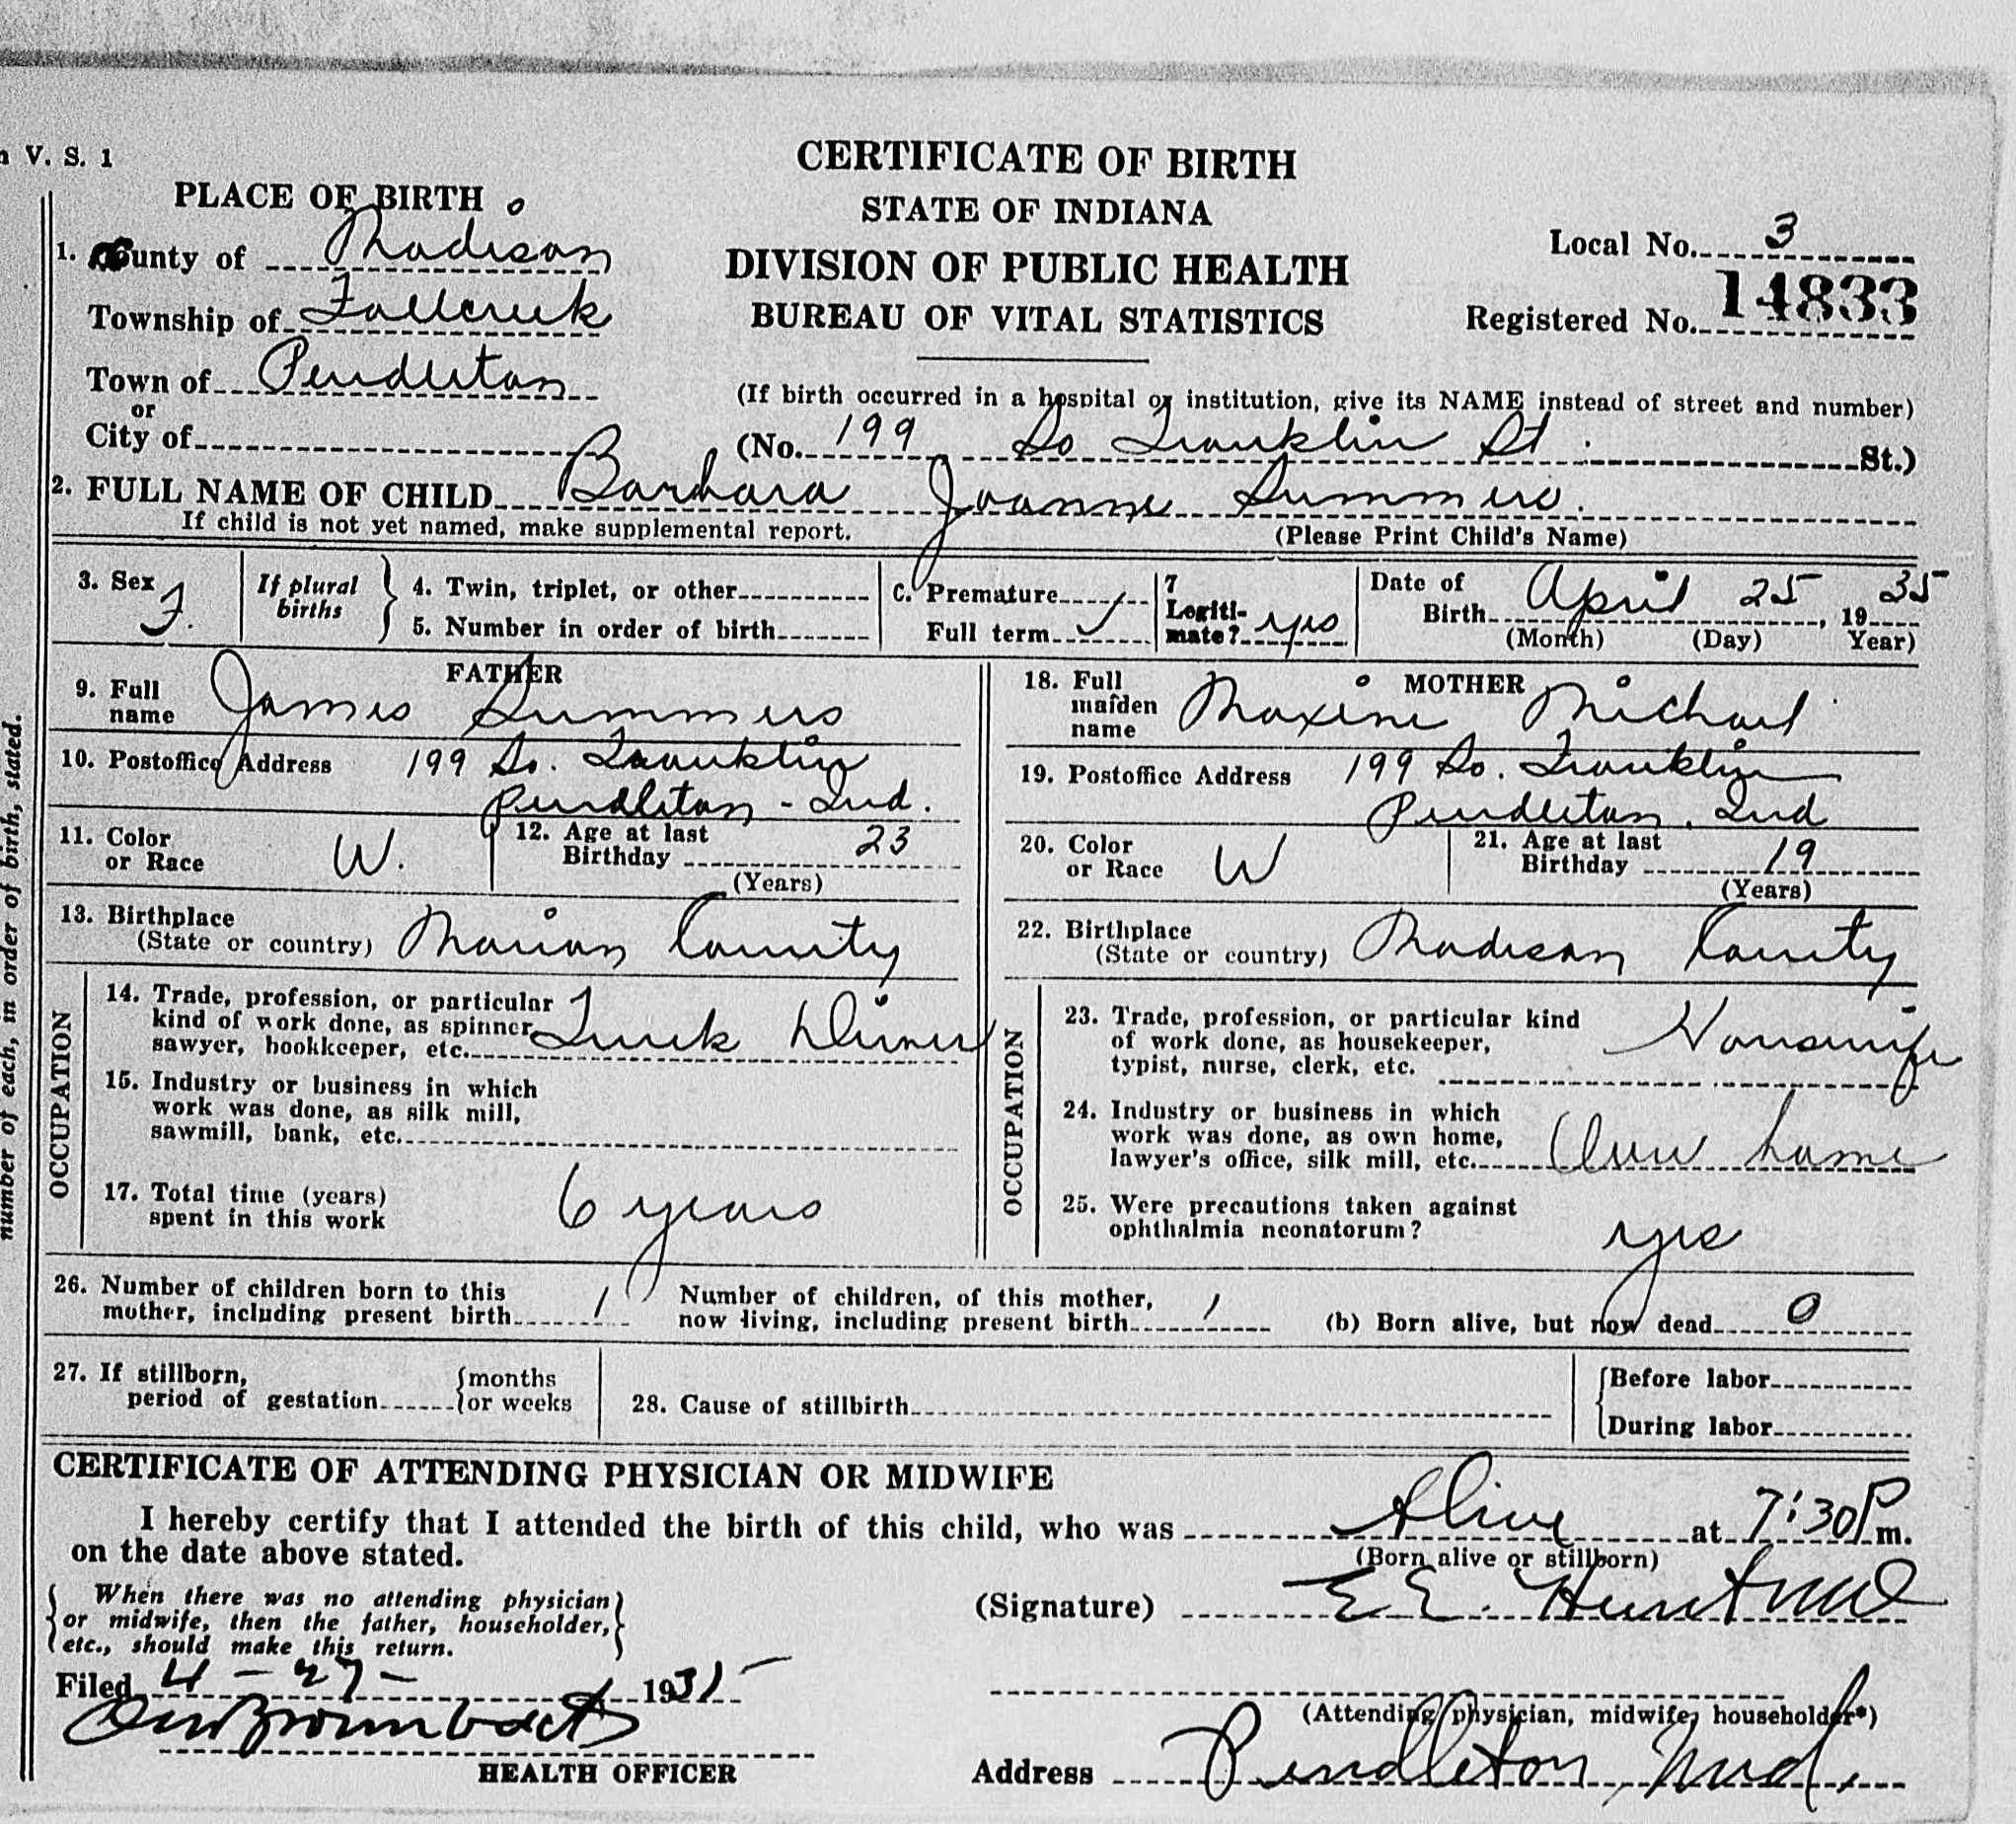 n V. S. 1
CERTIFICATE OF BIRTH
STATE OF INDIANA
DIVISION OF PUBLIC HEALTH
BUREAU OF VITAL STATISTICS
PLACE OF BIRTH
1. County of Madison
Township of Fallcreek
Town of Pendleton
or
City of
Local No. 3
Registered No. 14833
(If birth occurred in a hospital or institution, give its NAME instead of street and number)
(No. 199 So Franklin St. St.)
2. FULL NAME OF CHILD Barbara Joanne Summers.
If child is not yet named, make supplemental report.
(Please Print Child's Name)
3. Sex F.
If plural births
4. Twin, triplet, or other
5. Number in order of birth
6. Premature
Full term ✓
7 Legitimate? yes
Date of Birth April 25, 1935
(Month) (Day) Year)
FATHER
9. Full name James Summers
10. Postoffice Address 199 So. Franklin
Pendleton - Ind.
11. Color or Race W.
12. Age at last Birthday 23
(Years)
13. Birthplace (State or country) Marion County
OCCUPATION
14. Trade, profession, or particular
kind of work done, as spinner,
sawyer, bookkeeper, etc. Truck Driver
15. Industry or business in which
work was done, as silk mill,
sawmill, bank, etc.
17. Total time (years)
spent in this work 6 years
MOTHER
18. Full maiden name Maxine Michael
19. Postoffice Address 199 So. Franklin
Pendleton, Ind
20. Color or Race W
21. Age at last Birthday 19
(Years)
22. Birthplace (State or country) Madison County
OCCUPATION
23. Trade, profession, or particular kind
of work done, as housekeeper,
typist, nurse, clerk, etc. Housewife
24. Industry or business in which
work was done, as own home,
lawyer's office, silk mill, etc. Own home
25. Were precautions taken against
ophthalmia neonatorum? yes
26. Number of children born to this
mother, including present birth 1
Number of children, of this mother,
now living, including present birth 1
(b) Born alive, but now dead 0
27. If stillborn,
period of gestation {months or weeks
28. Cause of stillbirth
{Before labor
{During labor
CERTIFICATE OF ATTENDING PHYSICIAN OR MIDWIFE
I hereby certify that I attended the birth of this child, who was Alive at 7:30 P m.
(Born alive or stillborn)
on the date above stated.
{When there was no attending physician
or midwife, then the father, householder,
etc., should make this return.}
(Signature) E E.
Filed 4-27- 1935
HEALTH OFFICER
(Attending physician, midwife, householder*)
Address Pendleton, Ind.
number of each, in order of birth, stated.